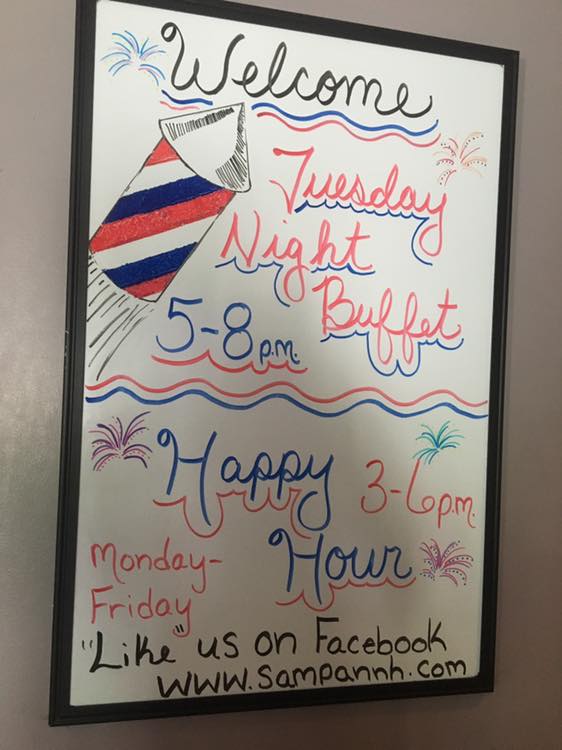 Welcome
Tuesday
Night
Buffet
5-8 p.m.
Happy
3-6 p.m.
Hour
Monday-
Friday
"Like" us on Facebook
www.sampannh.com